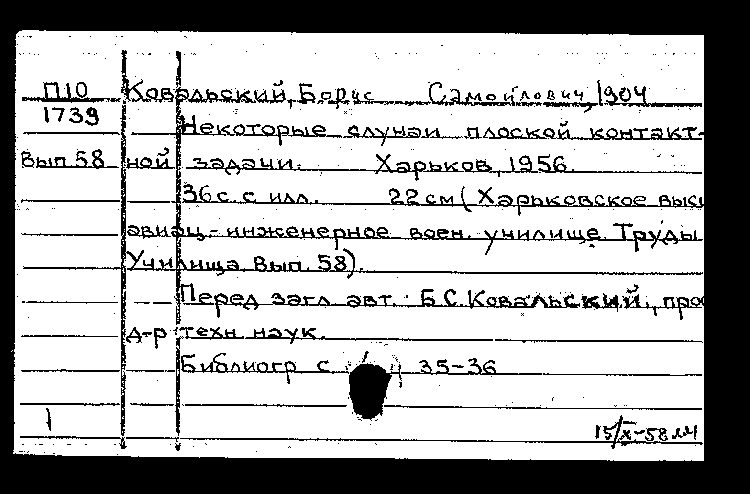 П10 Ковальский, Борис Самойлович, 1904
1739 Некоторые случаи плоской контакт-
Вып 58 ной задачи. Харьков, 1956.
36 с. с илл. 22 см (Харьковское высш
авиац.-инженерное воен. училище. Труды
Училища. Вып. 58).
Перед загл. авт.: Б.С. Ковальский, про
д-р техн. наук.
Библиогр с. 35-36
1
15/X-58